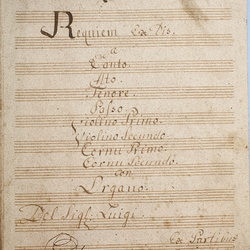 Requiem Ex Dis.
a
Canto.
Alto.
Tenore.
Basso
Violino Primo.
Violino Secundo
Cornu Primo.
Cornu Secundo.
con
Organo.
Del Sigl: Luigi
Ex Partibus